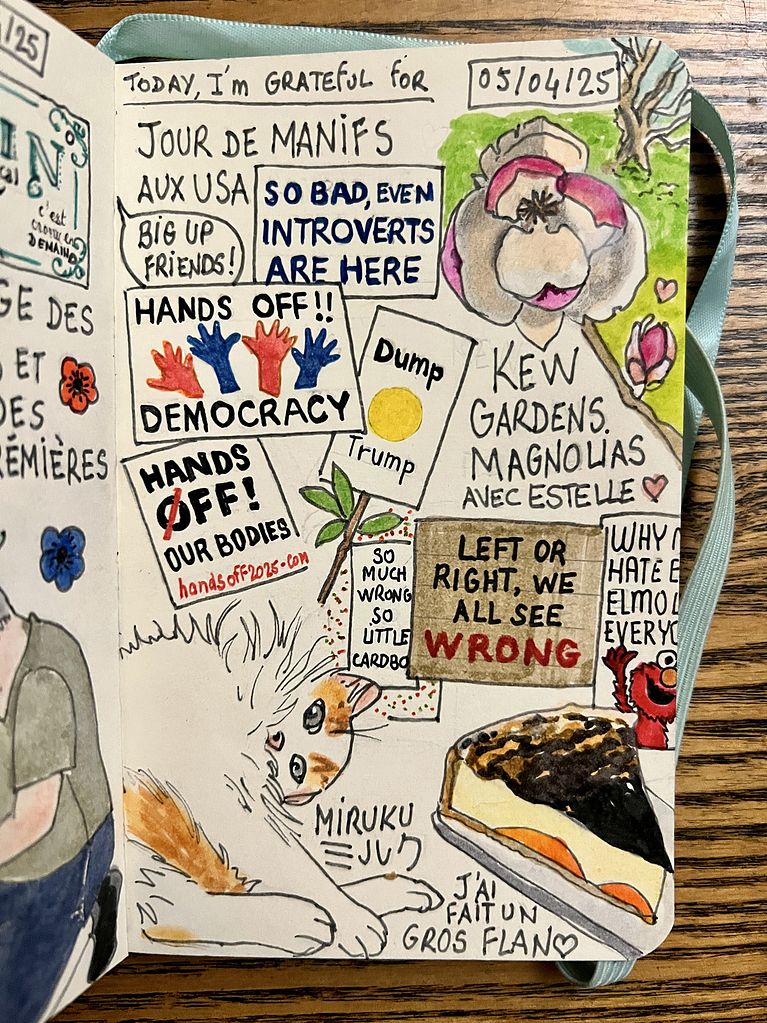 /25
IN
c'est
DEMAIN
GE DES
ET
DES
RÉMIÈRES
TODAY, I'm GRATEFUL FOR
05/04/25
JOUR DE MANIFS
AUX USA
BIG UP
FRIENDS!
SO BAD, EVEN
INTROVERTS
ARE HERE
HANDS OFF!!
DEMOCRACY
Dump
Trump
KEW
GARDENS.
MAGNOLIAS
AVEC ESTELLE
HANDS
OFF!
OUR BODIES
handsoff2025.com
SO
MUCH
WRONG
SO
LITTLE
CARDBO
LEFT OR
RIGHT, WE
ALL SEE
WRONG
WHY
HATE E
ELMO L
EVERYO
MIRUKU
ミルク
J'AI
FAIT UN
GROS FLAN